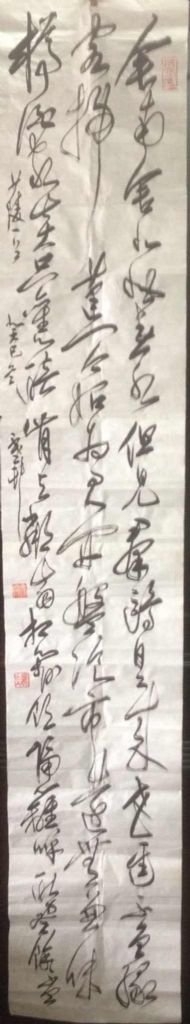 舍南舍北皆春水但見群鷗日日來花徑不曾緣
客掃蓬門今始為君開盤飧市遠無兼味
樽酒家貧只舊醅肯與鄰翁相對飲隔籬呼取盡餘
少陵一首 癸巳冬